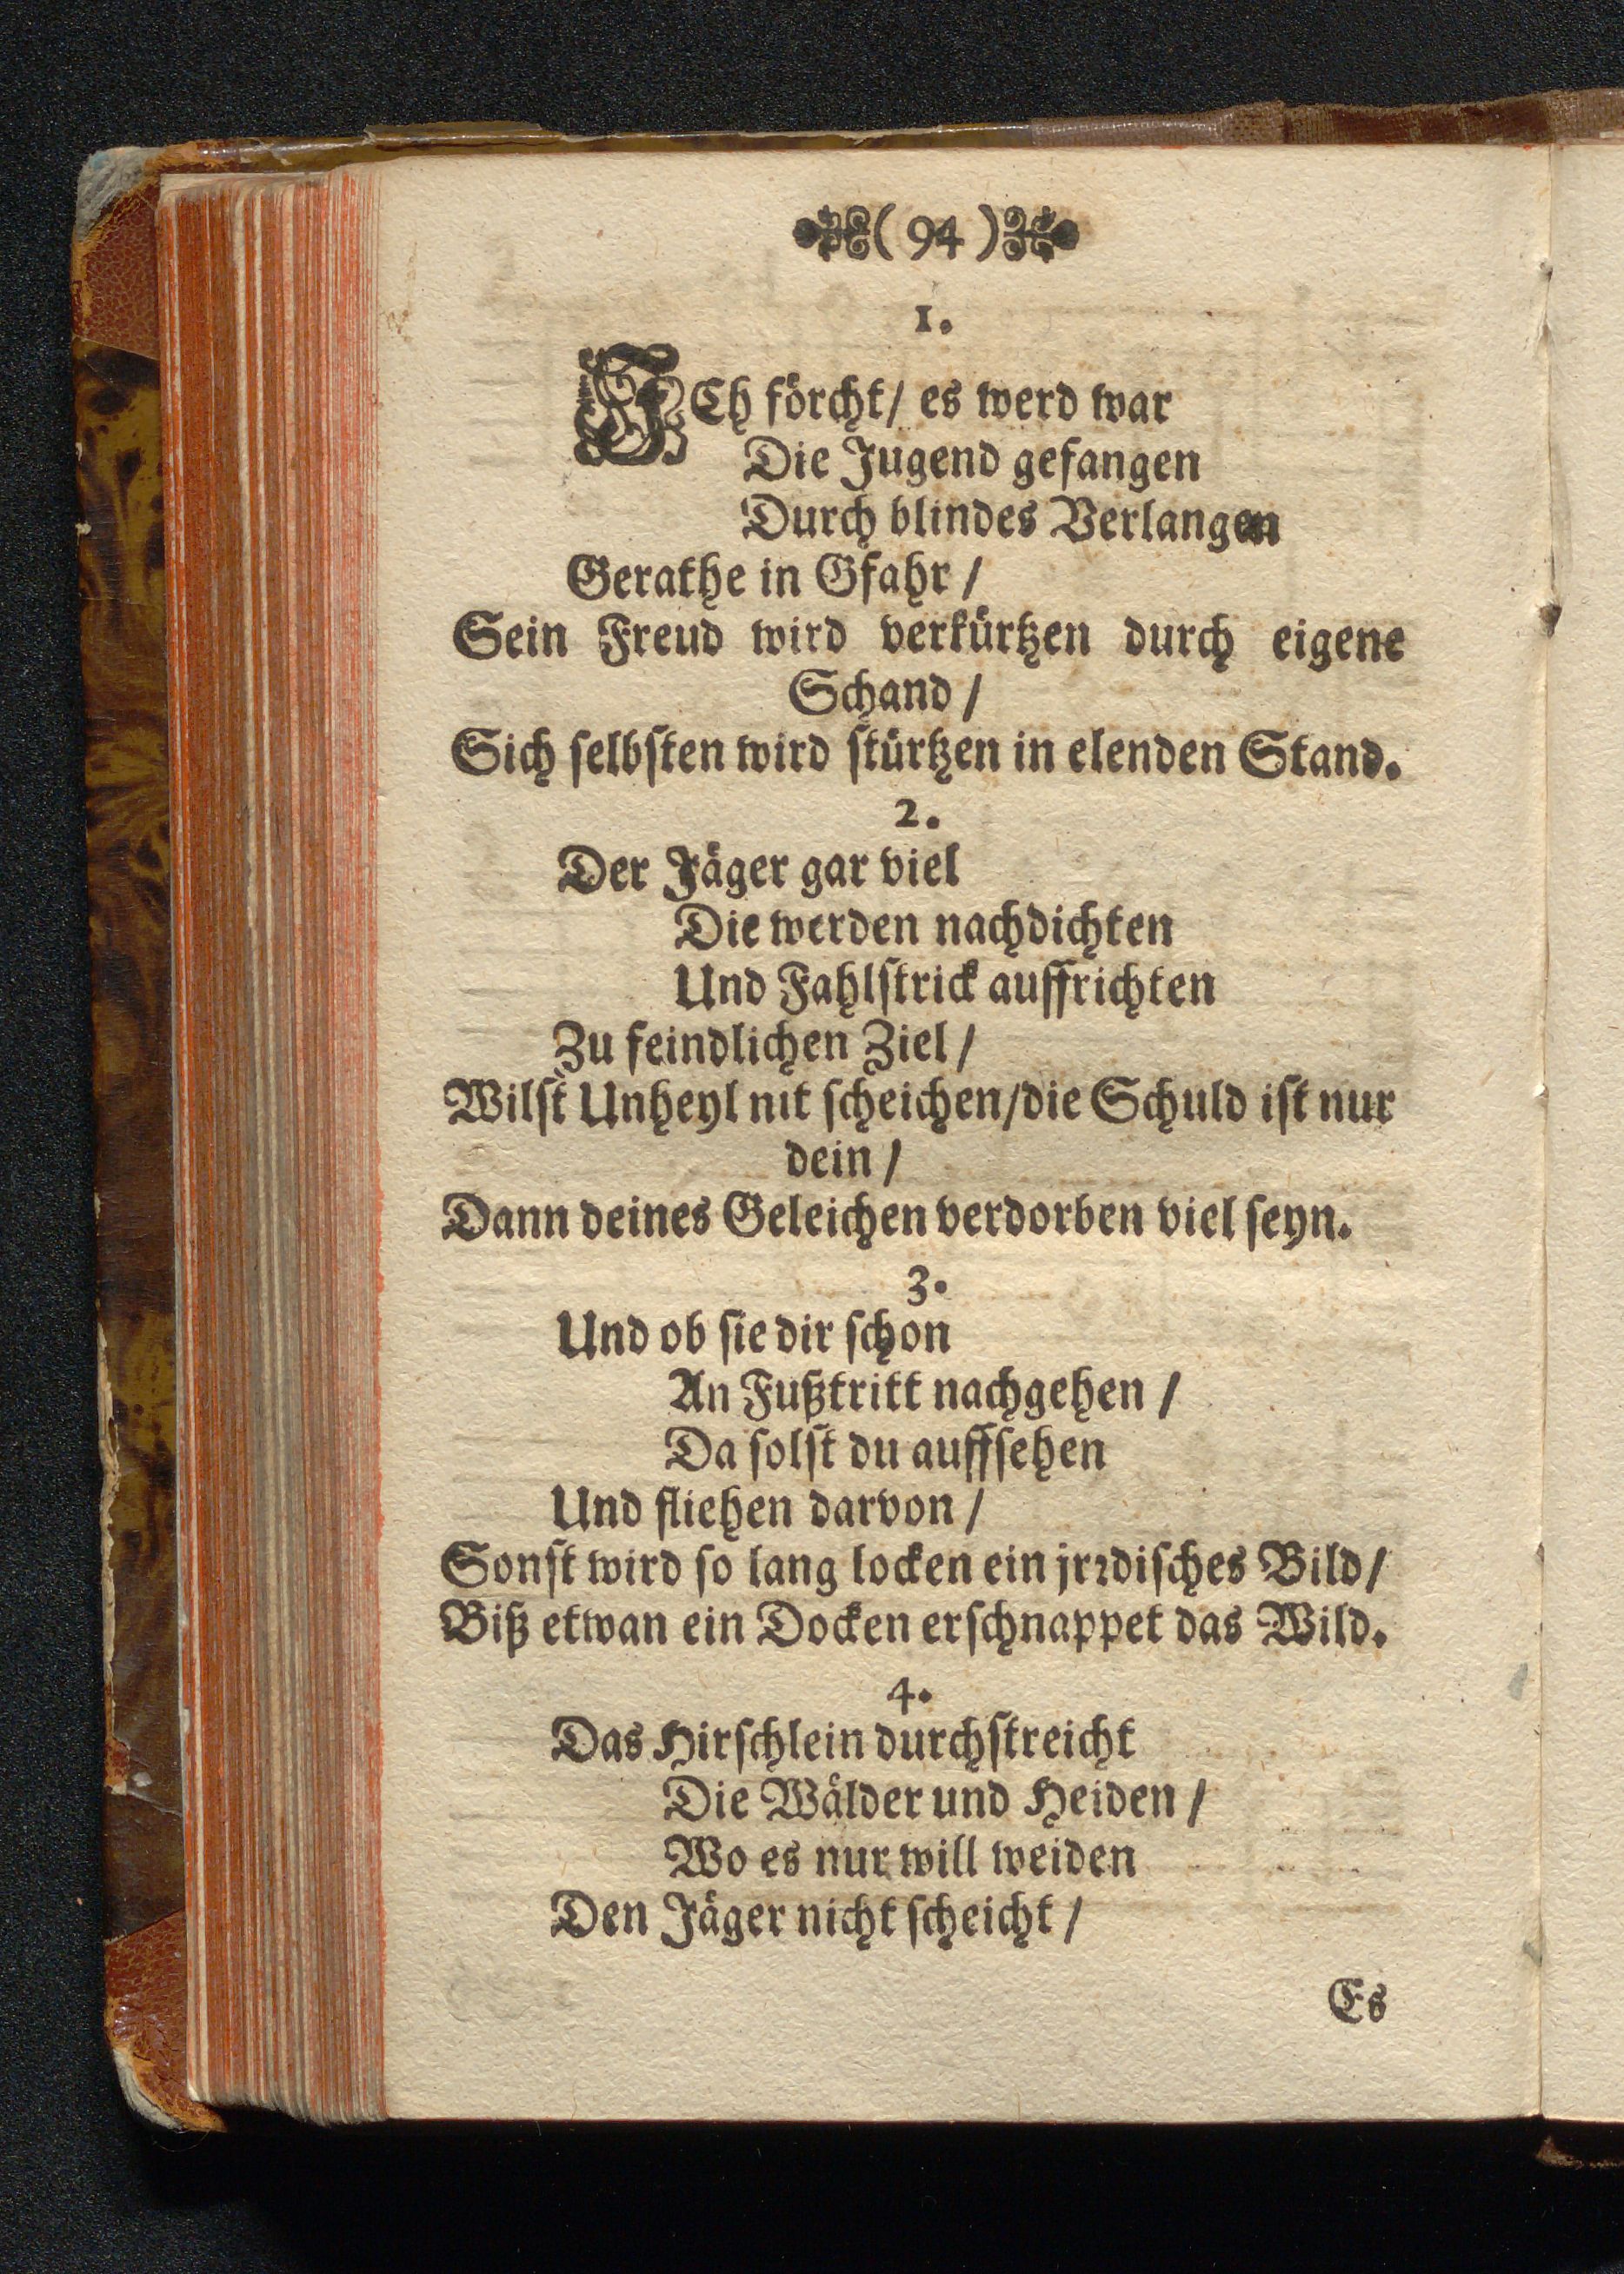 ( 94 )
1.
JCh förcht/ es werd war
Die Jugend gefangen
Durch blindes Verlangen
Gerathe in Gfahr /
Sein Freud wird verkürtzen durch eigene
Schand /
Sich selbsten wird stürtzen in elenden Stand.
2.
Der Jäger gar viel
Die werden nachdichten
Und Fahlstrick auffrichten
Zu feindlichen Ziel /
Wilst Unheyl nit scheichen/die Schuld ist nur
dein /
Dann deines Geleichen verdorben viel seyn.
3.
Und ob sie dir schon
An Fußtritt nachgehen /
Da solst du auffsehen
Und fliehen darvon /
Sonst wird so lang locken ein jrꝛdisches Bild/
Biß etwan ein Docken erschnappet das Wild.
4.
Das Hirschlein durchstreicht
Die Wälder und Heiden /
Wo es nur will weiden
Den Jäger nicht scheicht /
Es